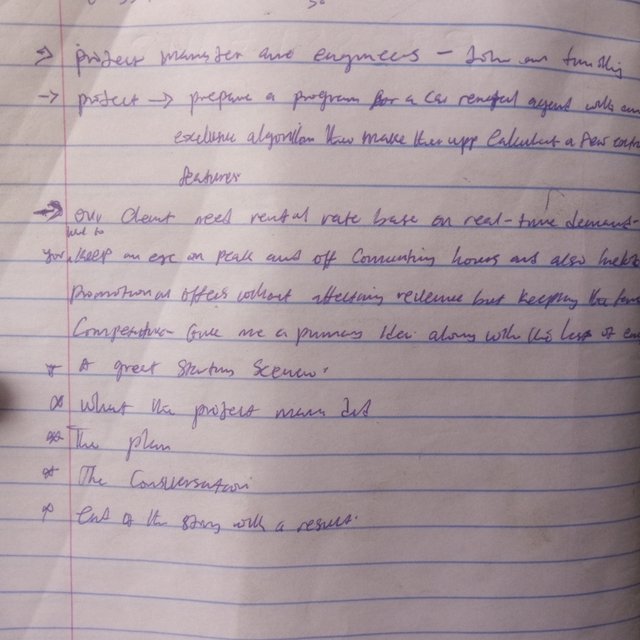 → project manager and engineers - 
→ project → prepare a program for a car rental agent with an
algorithm that make the app calculat a few extra
features
→ Our client need rental rate base on real-time demand-
you need to keep an eye on peak and off commuting hours and also
promotional offers without affecting revenue but keeping the
Competition Give me a primary idea along with the list of
* A great starting scenario.
* What the project manager did
* The plan
* The Conversation
* End of the story with a result.